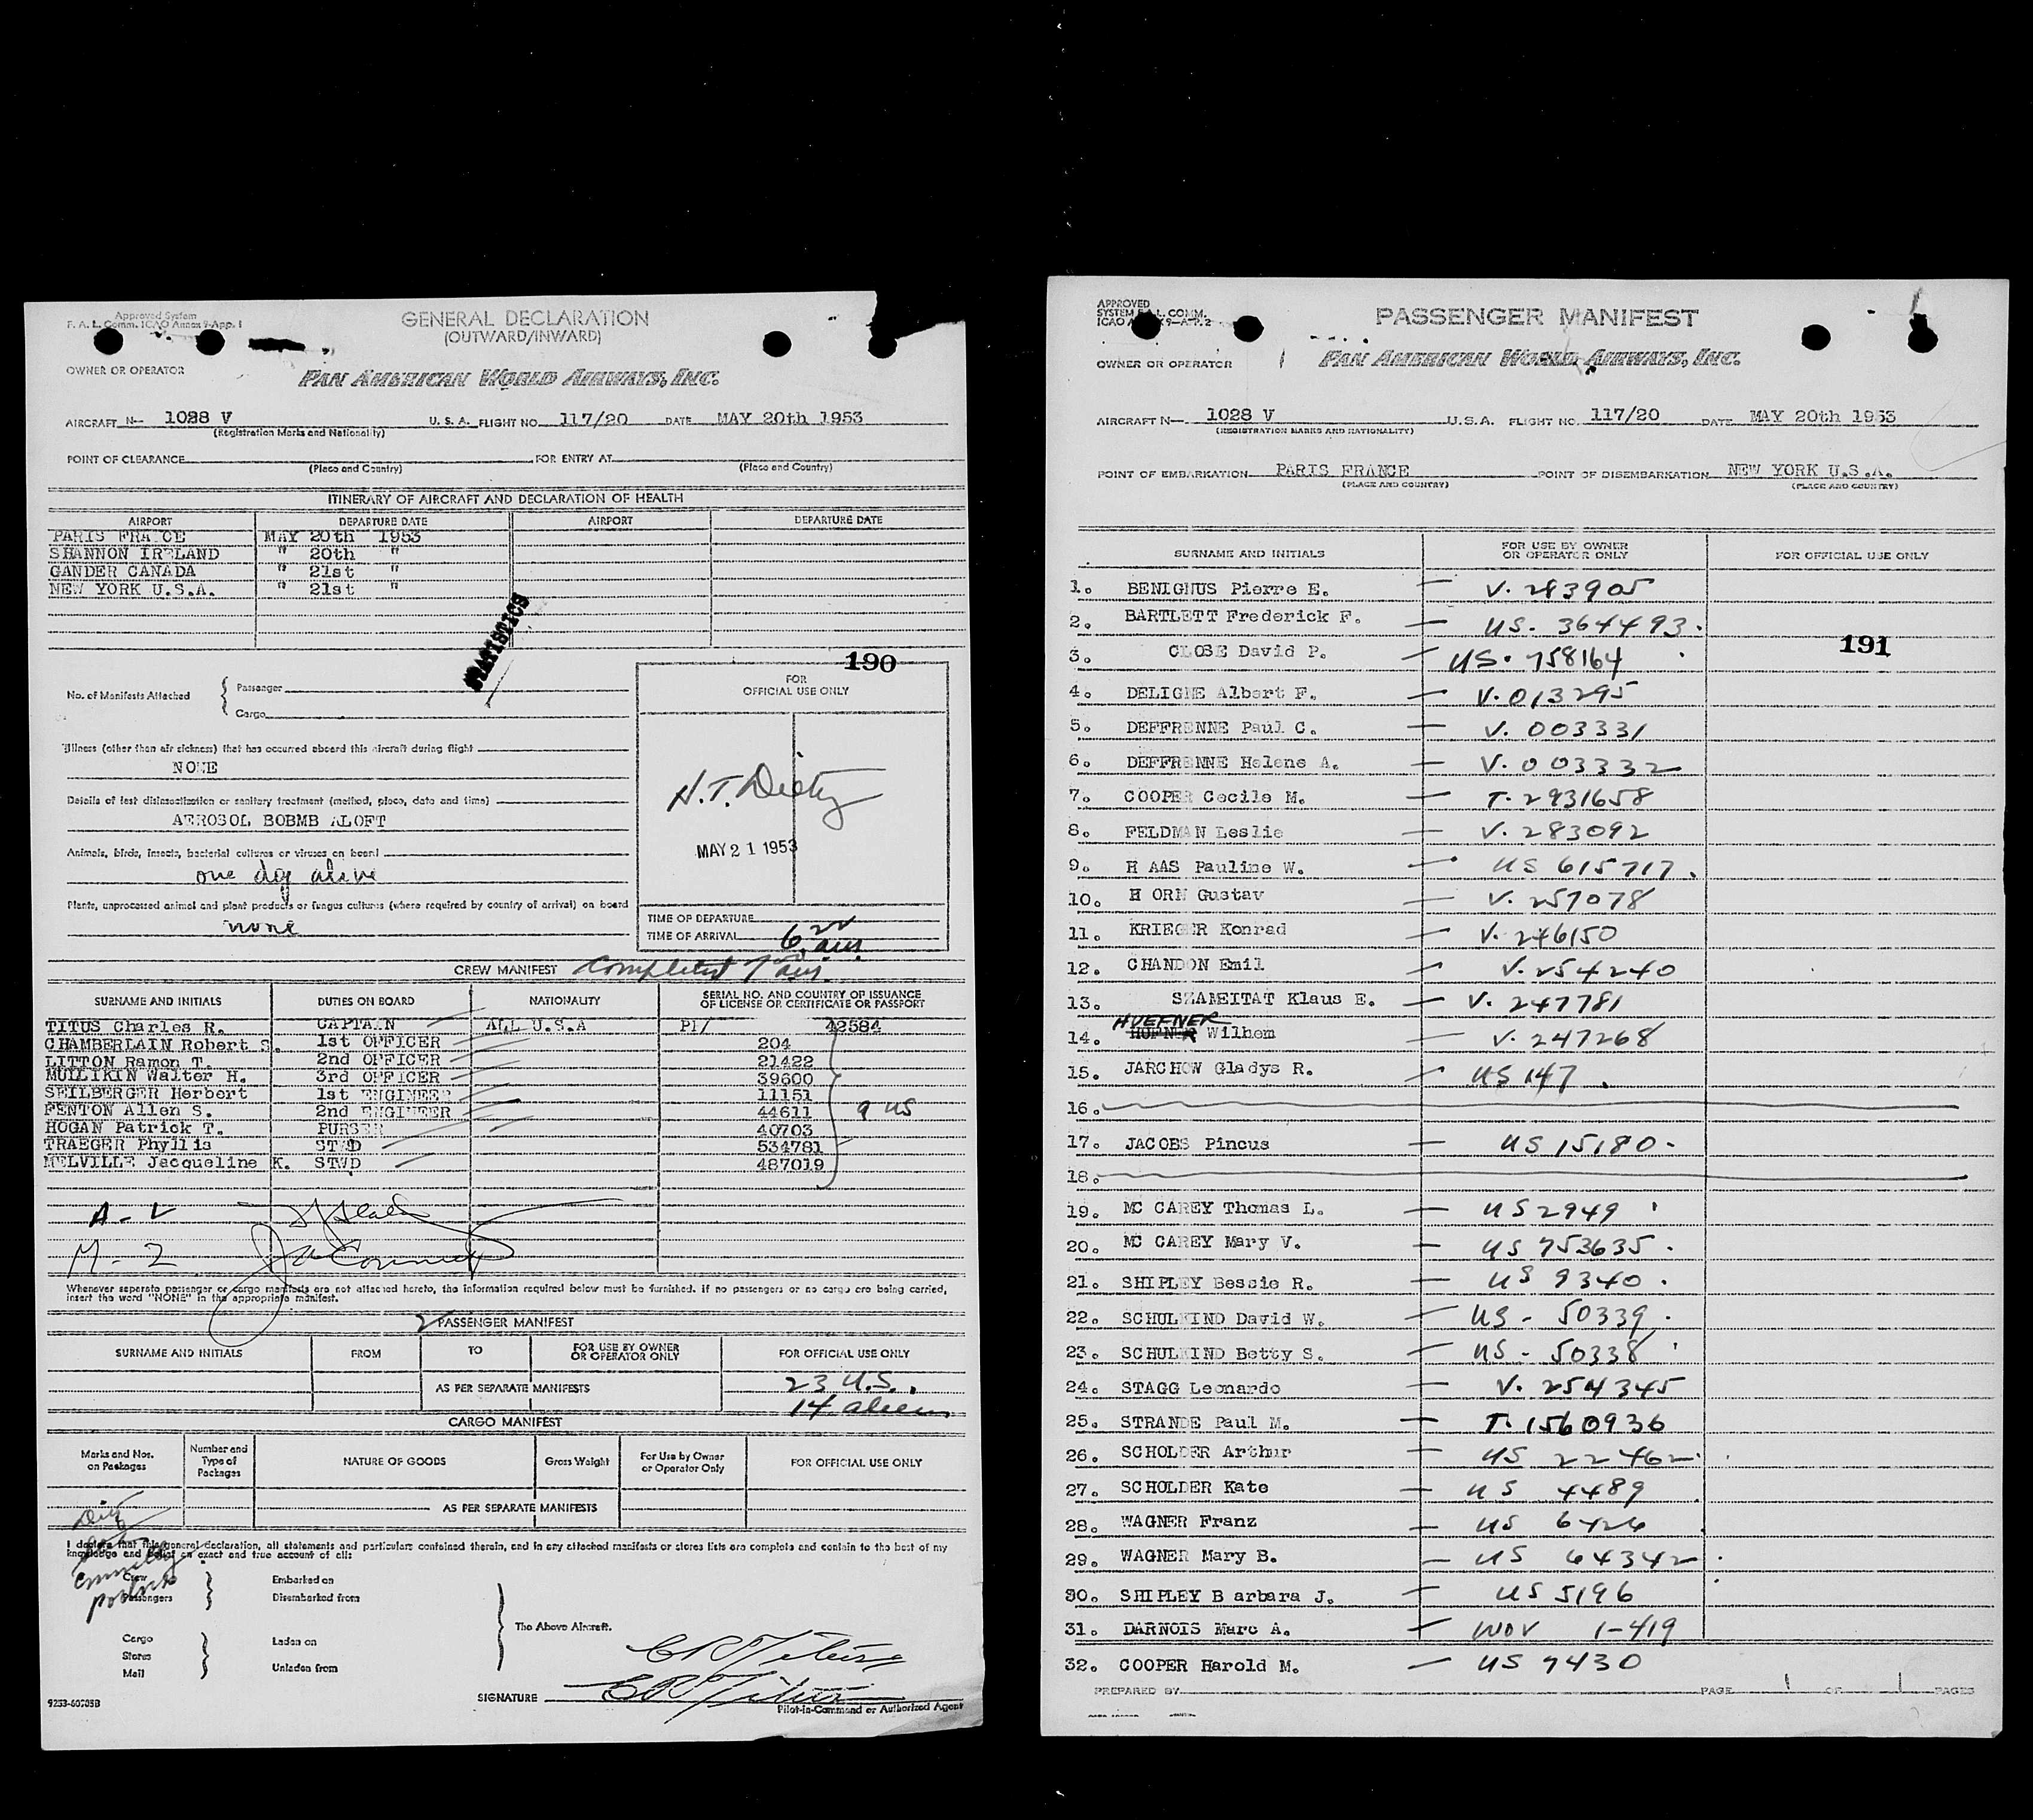 Approved System
F. A. L. Comm. ICAO Annex 9-App. 1
GENERAL DECLARATION
(OUTWARD/INWARD)
OWNER OR OPERATOR
PAN AMERICAN WORLD AIRWAYS, INC.
AIRCRAFT N- 1028 V U. S. A. FLIGHT NO. 117/20 DATE MAY 20th 1953
(Registration Marks and Nationality)
POINT OF CLEARANCE FOR ENTRY AT
(Place and Country) (Place and Country)
ITINERARY OF AIRCRAFT AND DECLARATION OF HEALTH
AIRPORT DEPARTURE DATE AIRPORT DEPARTURE DATE
PARIS FRANCE MAY 20th 1953
SHANNON IRELAND " 20th "
GANDER CANADA " 21st "
NEW YORK U.S.A. " 21st "
STATISTICS
190
No. of Manifests Attached
Passenger
Cargo
FOR
OFFICIAL USE ONLY
Illness (other than air sickness) that has occurred aboard this aircraft during flight
NONE
Details of last disinsectization or sanitary treatment (method, place, date and time)
AEROSOL BOBMB ALOFT
Animals, birds, insects, bacterial cultures or viruses on board
one dog alive
Plants, unprocessed animal and plant products or fungus cultures (where required by country of arrival) on board
none
MAY 21 1953
TIME OF DEPARTURE
TIME OF ARRIVAL 6 am
CREW MANIFEST Completed 7 am
SURNAME AND INITIALS DUTIES ON BOARD NATIONALITY SERIAL NO. AND COUNTRY OF ISSUANCE OF LICENSE OR CERTIFICATE OR PASSPORT
TITUS Charles R. CAPTAIN ALL U.S.A Pl/ 42584
CHAMBERLAIN Robert S. 1st OFFICER 204
LITTON Ramon T. 2nd OFFICER 21422
MUILIKIN Walter H. 3rd OFFICER 39600
SEILBERGER Herbert 1st ENGINEER 11151
FENTON Allen S. 2nd ENGINEER 44611 9 US
HOGAN Patrick T. PURSER 40703
TRAEGER Phyllis STWD 534781
MELVILLE Jacqueline K. STWD 487019
A - V
M - 2
Whenever separate passenger or cargo manifests are not attached hereto, the information required below must be furnished. If no passengers or no cargo are being carried,
insert the word "NONE" in the appropriate manifest.
PASSENGER MANIFEST
SURNAME AND INITIALS FROM TO FOR USE BY OWNER OR OPERATOR ONLY FOR OFFICIAL USE ONLY
AS PER SEPARATE MANIFESTS 23 U.S.
14 aliens
CARGO MANIFEST
Marks and Nos. on Packages Number and Type of Packages NATURE OF GOODS Gross Weight For Use by Owner or Operator Only FOR OFFICIAL USE ONLY
AS PER SEPARATE MANIFESTS
I declare that this general declaration, all statements and particulars contained therein, and in any attached manifests or stores lists are complete and contain to the best of my
knowledge and belief an exact and true account of all:
Crew Embarked on
Passengers Disembarked from
The Above Aircraft.
Cargo Laden on
Stores
Mail Unladen from
SIGNATURE CR Titus
Pilot-in-Command or Authorized Agent
9253-60705B
APPROVED
SYSTEM F.A.L. COMM.
ICAO ANNEX 9-APP. 2
PASSENGER MANIFEST
OWNER OR OPERATOR
PAN AMERICAN WORLD AIRWAYS, INC.
AIRCRAFT N- 1028 V U.S.A. FLIGHT NO. 117/20 DATE MAY 20th 1953
(REGISTRATION MARKS AND NATIONALITY)
POINT OF EMBARKATION PARIS FRANCE POINT OF DISEMBARKATION NEW YORK U.S.A.
(PLACE AND COUNTRY) (PLACE AND COUNTRY)
SURNAME AND INITIALS FOR USE BY OWNER OR OPERATOR ONLY FOR OFFICIAL USE ONLY
1. BENIGHUS Pierre E. — V. 283905
2. BARTLETT Frederick F. — US. 364493.
191
3. CLOSE David P. — US. 758164
4. DELIGNE Albert F. — V. 013295
5. DEFFRENNE Paul C. — V. 003331
6. DEFFRENNE Helene A. — V. 003332
7. COOPER Cecile M. — T. 2931658
8. FELDMAN Leslie — V. 283092
9. H AAS Pauline W. — US 615717.
10. H ORN Gustav — V. 257078
11. KRIEGER Konrad — V. 246150
12. CHANDON Emil — V. 254240
13. SZAMEITAT Klaus E. — V. 247781
HUEFNER
14. HOFNER Wilhem — V. 247268
15. JARCHOW Gladys R. — US 147.
16.
17. JACOBS Pincus — US 15180.
18.
19. MC CAREY Thomas L. — US 2949
20. MC CAREY Mary V. — US 753635.
21. SHIPLEY Bessie R. — US 9340.
22. SCHULKIND David W. — US - 50339.
23. SCHULKIND Betty S. — US - 50338
24. STAGG Leonardo — V. 254345
25. STRANDE Paul M. — T. 1560936
26. SCHOLDER Arthur — US 22462.
27. SCHOLDER Kate — US 4489
28. WAGNER Franz — US 6426
29. WAGNER Mary B. — US 64342
30. SHIPLEY B arbara J. — US 5196
31. DARNOIS Marc A. — WOV 1-419
32. COOPER Harold M. — US 7430
PREPARED BY PAGE 1 OF 1 PAGES